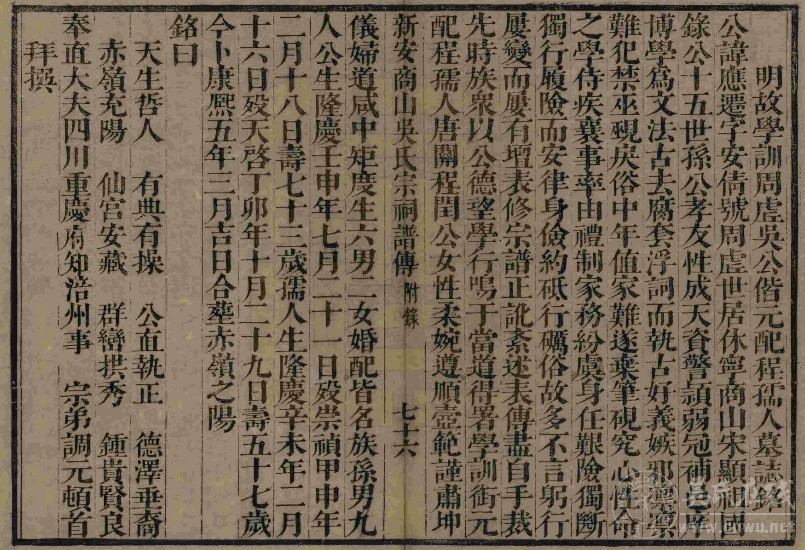 明故學訓周虛吳公偕元配程孺人墓誌銘
公諱應遷字安倩號周虛世居休寧商山宋顯祖國
錄公十五世孫公孝友性成天資警穎弱冠補
博學爲文法古去腐套浮詞而執古好義嫉邪
難犯禁巫覡戾俗中年值家難遂棄筆硯究心性命
之學侍疾襄事率由禮制家務紛虞身任艱險獨斷
獨行履險而安律身儉約砥行礪俗故多不言躬行
屢變而屢有壇表修宗譜正訛紊述表傳盡自手裁
先時族衆以公德望學行鳴于當道得署學訓銜元
配程孺人唐關程閏公女性柔婉遵順壼範謹肅坤
新安商山吳氏宗祠譜傳 附錄 七十六
儀婦道咸中矩度生六男二女婚配皆名族孫男九
人公生隆慶壬申年七月二十一日歿崇禎甲申年
二月十八日壽七十三歲孺人生隆慶辛未年二月
十六日歿天啓丁卯年十月二十九日壽五十七歲
今卜康熙五年三月吉日合塟赤嶺之陽
銘曰
天生哲人 有典有操 公直執正 德澤垂裔
赤嶺充陽 仙宮安藏 群巒拱秀 鍾貴賢良
奉直大夫四川重慶府知涪州事 宗弟調元頓首
拜撰